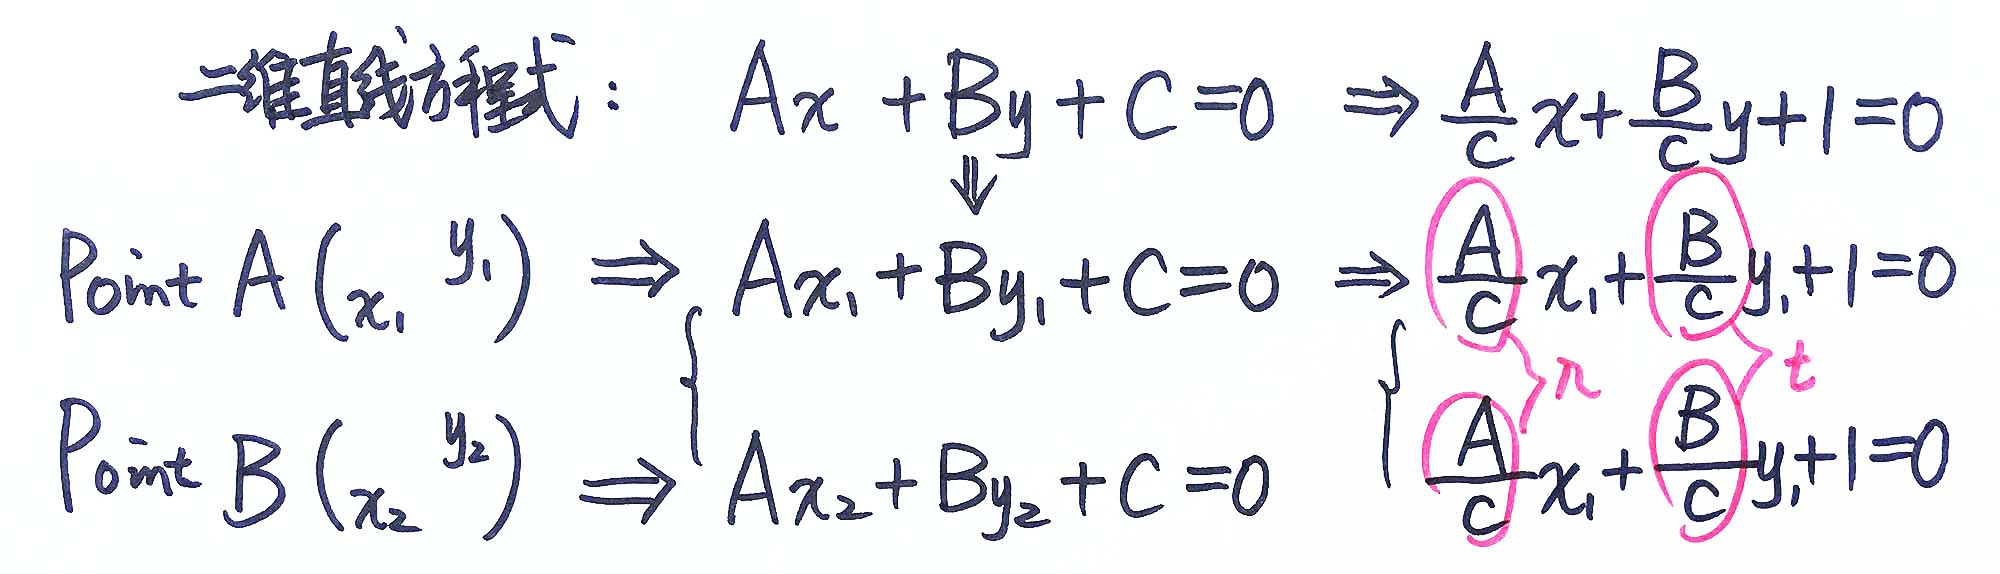 二维直线方程式: Ax + By + C = 0 ⇒ A/C x + B/C y + 1 = 0
⇓
Point A (x₁ y₁) ⇒ Ax₁ + By₁ + C = 0 ⇒ A/C x₁ + B/C y₁ + 1 = 0
r t
Point B (x₂ y₂) ⇒ Ax₂ + By₂ + C = 0 A/C x₁ + B/C y₁ + 1 = 0